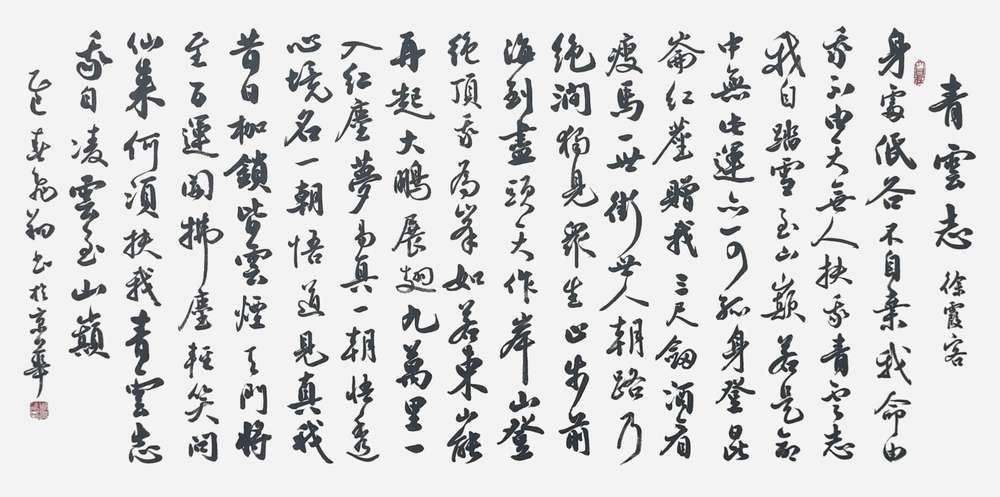 青雲志 徐霞客
身處低谷不自棄我命由
我不由天無人扶我青雲志
我自踏雪至山巔若是命
中無此運亦可孤身登昆
崙紅塵贈我三尺劍酒肴
瘦馬一世街世人朝路乃
絕澗獨見眾生止步前
海到盡頭天作岸山登
絕頂我為峯如若東山能
再起大鵬展翅九萬里一
入紅塵夢易真一朝悟透
心境名一朝悟道見真我
昔日枷鎖皆雲煙天門將
至百運開拂塵輕笑問
仙來何須扶我青雲志
我自凌雲至山巔
乙巳春 翰 書於京華